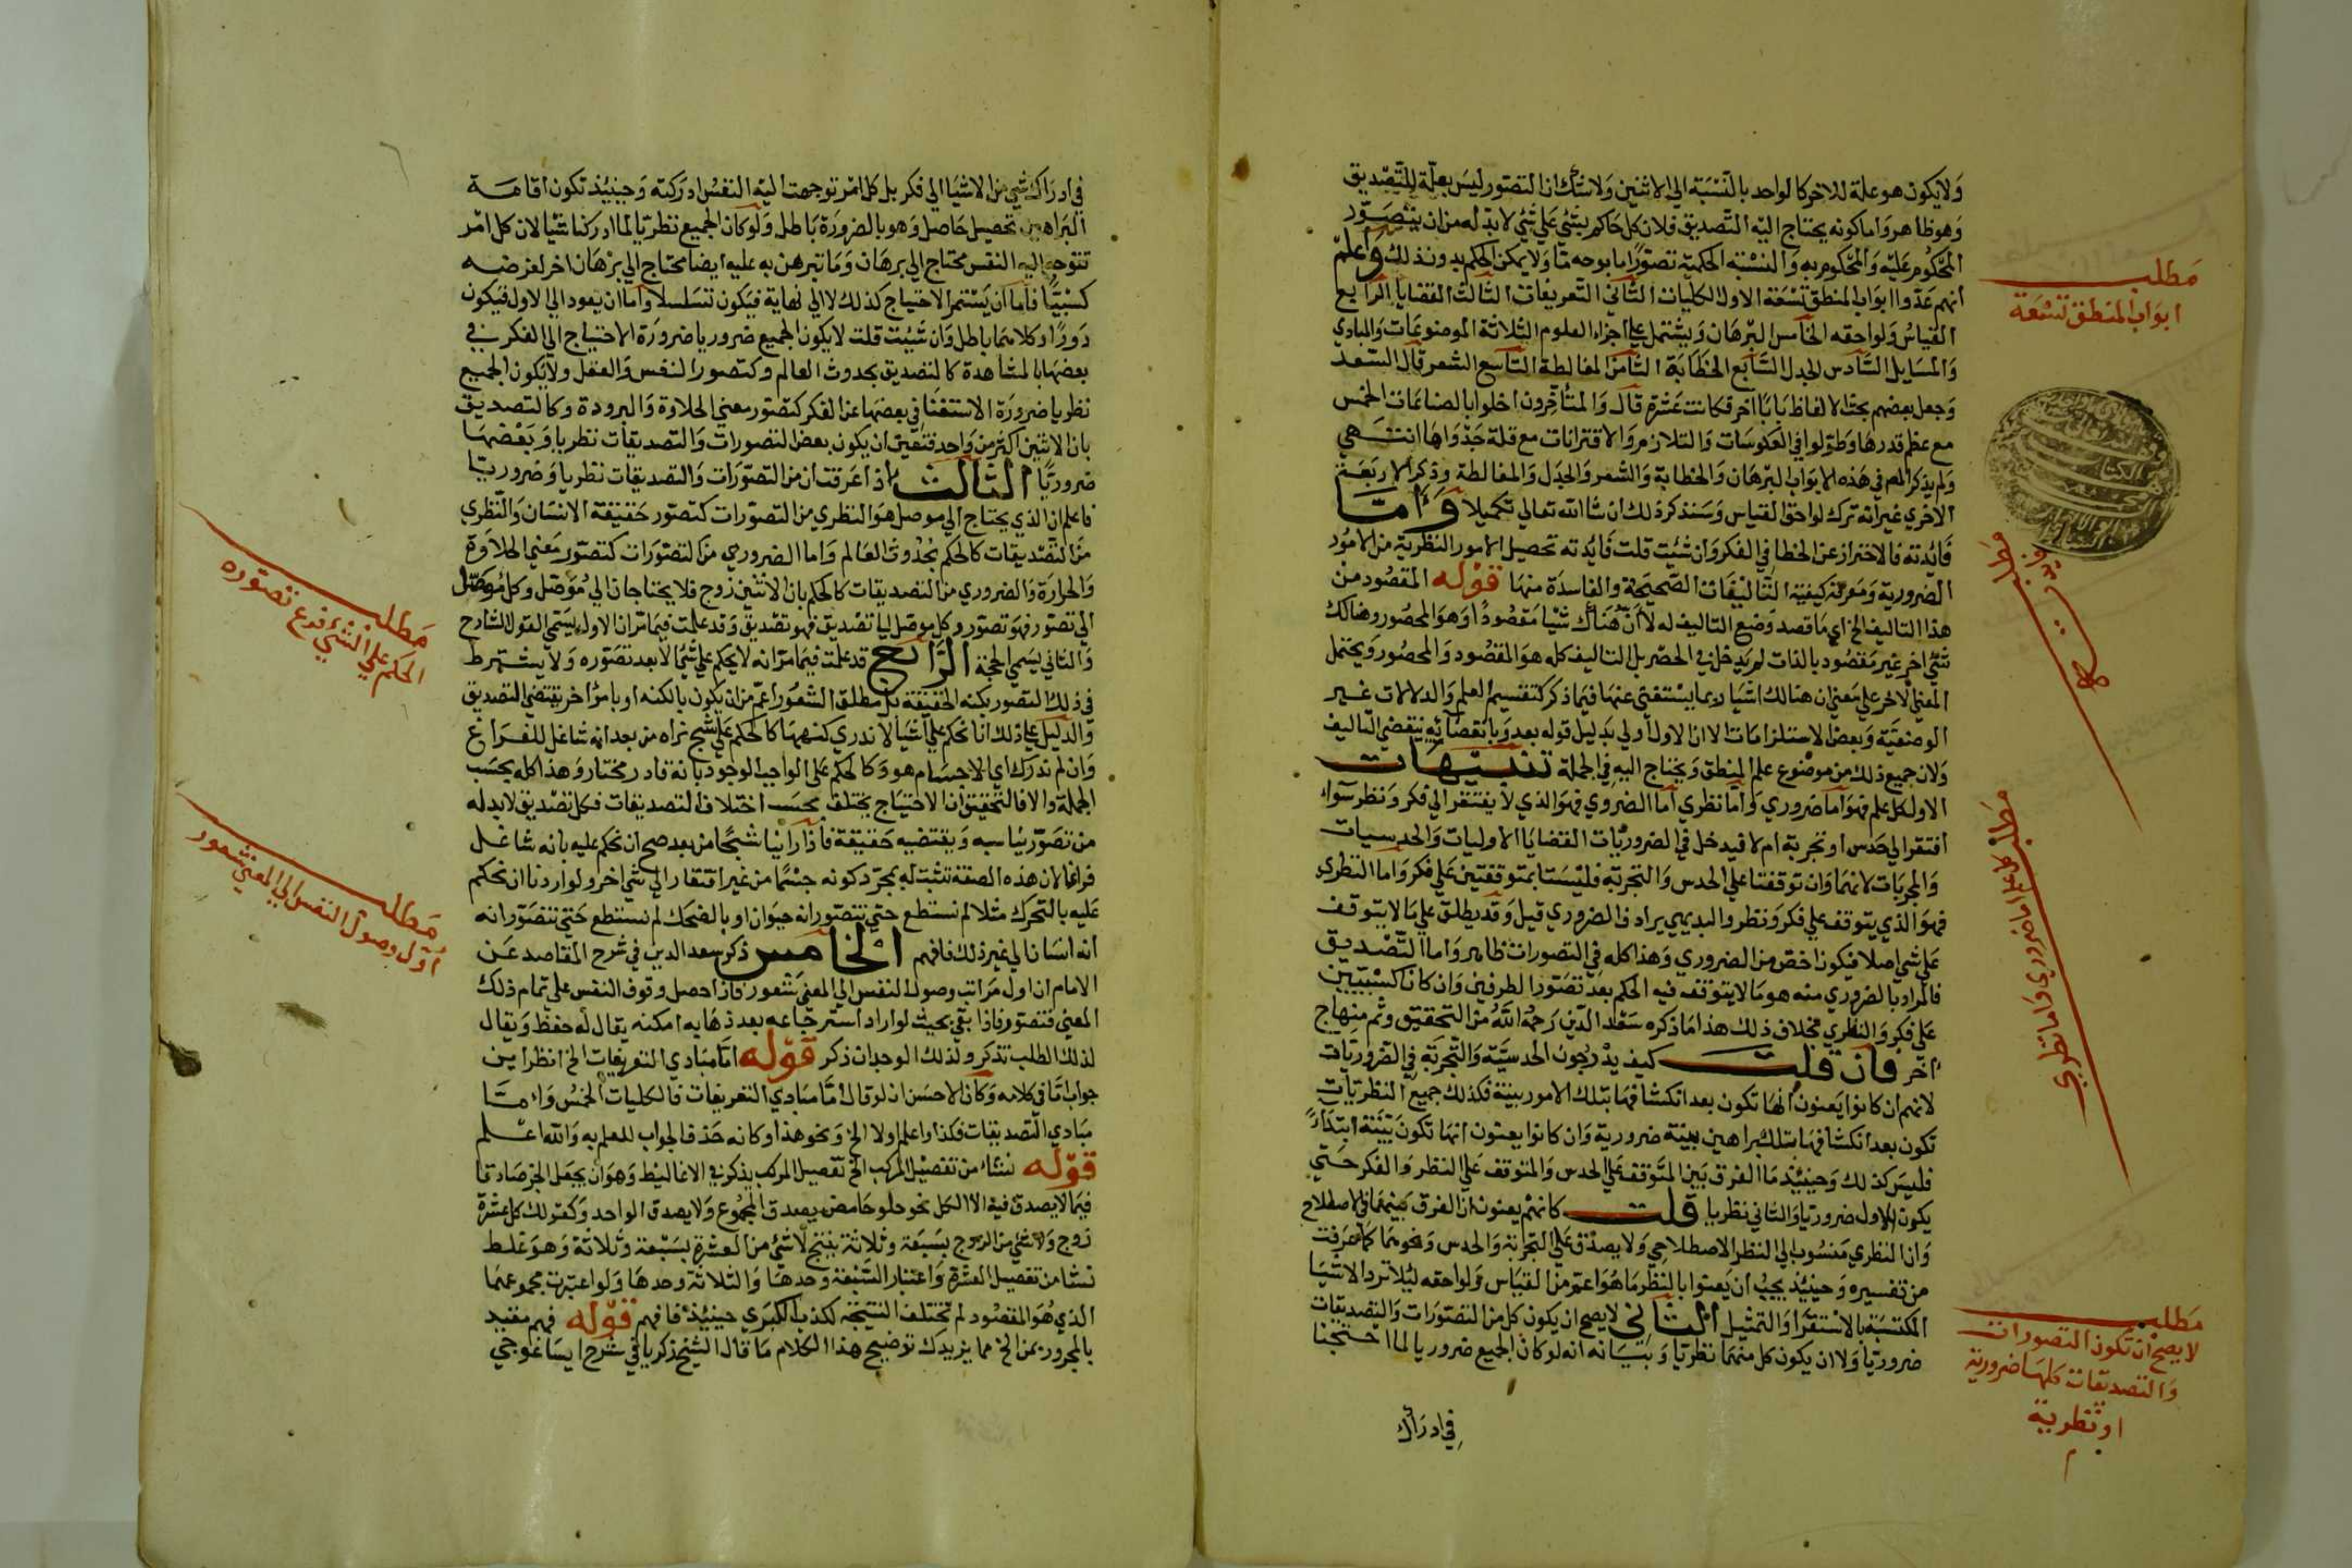 ولا يكون هو علة للاخر كالواحد بالنسبة الي الاثنين ولا شك ان التصور ليس بعلة للتصديق
وهو ظاهر واما كونه يحتاج اليه التصديق فلان كل حاكم بشئ علي شئ لا بد له من ان يتصور
المحكوم عليه والمحكوم به والنسبة الحكمية تصورا ما بوجه ما ولا يمكن الحكم بدون ذلك واعلم
انهم عدوا ابواب المنطق تسعة الاول الكليات الثاني التعريفات الثالث القضايا الرابع
القياس ولواحقه الخامس البرهان ويشتمل علي اجزاء العلوم الثلاثة الموضوعات والمبادي
والمسايل السادس الجدل السابع الخطابة الثامن المغالطة التاسع الشعر قال السعد
وجعل بعضهم بحث الالفاظ بابا آخر فكانت عشرة قال والمتأخرون اخلوا بالصناعات الخمس
مع عظم قدرها وطولوا في العكوسات والتلازم والاقترانات مع قلة جدواها انتهي
ولم يذكر المص في هذه الابواب البرهان والخطابة والشعر والجدل والمغالطة وذكر الاربعة
الاخري غير انه ترك لواحق القياس وسنذكر ذلك ان شا الله تعالي تكميلا واما
فائدته فالاحتراز عن الخطا في الفكر وان شئت قلت فائدته تحصيل الامور النظرية من الامور
الضرورية ومعرفة كيفية التاليفات الصحيحة والفاسدة منها قوله المقصود من
هذا التاليف الخ اي ما قصد وضع التاليف له لا ان هناك شيا مقصودا وهو المحصور وهنالك
شئ اخر غير مقصود بالذات لم يدخل في الحصر بل التاليف كله هو المقصود والمحصور ويحتمل
المعني الاخر علي معني ان هنالك اشيا ربما يستغني عنها فيما ذكر كتقسيم العلم والدلالات غير
الوضعية وبعض الاستلزامات الا ان الاول اولي بدليل قوله بعد وبانقضائه ينقضي التاليف
ولان جميع ذلك من موضوع علم المنطق ويحتاج اليه في الجملة تنبيهات
الاول كل علم فهو اما ضروري واما نظري اما الضروي فهو الذي لا يفتقر الي فكر ونظر سواء
افتقر الي حدس او تجربة ام لا فيدخل في الضروريات القضايا الاوليات والحدسيات
والمجربات لانهما وان توقفتا علي الحدس والتجربة فليستا بمتوقفتين علي فكر واما النظري
فهو الذي يتوقف علي فكر ونظر والبديهي يرادف الضروري قيل وقد يطلق علي ما لا يتوقف
علي شي اصلا فيكون اخص من الضروري وهذا كله في التصورات ظاهر واما التصديق
فالمراد بالضروري منه هو ما لا يتوقف فيه الحكم بعد تصور الطرفين وان كانا كسبيين
علي فكر والنظري بخلاف ذلك هذا ما ذكره سعد الدين رحمه الله من التحقيق وثم منهاج
آخر فان قلت كيف يدرجون الحدسية والتجربة في الضروريات
لانهم ان كانوا يعنون انها تكون بعد انكشافها بتلك الامور بينة فكذلك جميع النظريات
تكون بعد انكشافها بتلك البراهين بينة ضرورية وان كانوا يعنون انها تكون بينة ابتداء
فليس كذلك وحينئذ ما الفرق بين المتوقف علي الحدس والمتوقف علي النظر والفكر حتي
يكون الاول ضروريا والثاني نظريا قلت كانهم يعنون ان الفرق بينهما في الاصطلاح
وان النظري منسوب الي النظر الاصطلاحي ولا يصدق علي التجربة والحدس ونحوهما كما عرفت
من تفسيره وحينئذ يجب ان يعنوا بالنظر ما هو اعم من القياس ولواحقه ليلا ترد الاشيا
المكتسبة بالاستقرا والتمثيل الثاني لا يصح ان يكون كل من التصورات والتصديقات
ضروريا ولا ان يكون كل منهما نظريا وبيانه انه لو كان الجميع ضروريا لما احتجنا
في ادراك
مطلب
ابواب المنطق تسعة
مطلب
فايدته
مطلب
كل علم اما ضروري واما نظري
مطلب
لا يصح ان تكون التصورات
والتصديقات كلها ضرورية
او نظرية
في ادراك شي من الاشيا الي فكر بل كل امر توجهت اليه النفس ادركته وحينئذ تكون اقامة
البراهين تحصيل حاصل وهو بالضرورة باطل ولو كان الجميع نظريا لما ادركنا شيا لان كل امر
تتوجه اليه النفس محتاج الي برهان وما تبرهن به عليه ايضا محتاج الي برهان اخر لفرضه
كسبيا فاما ان يستمر الاحتياج كذلك لا الي نهاية فيكون تسلسلا واما ان يعود الي الاول فيكون
دورا وكلاهما باطل وان شئت قلت لا يكون الجميع ضروريا ضرورة الاحتياج الي الفكر في
بعضها بالمشاهدة كالتصديق بحدوث العالم وكتصور النفس والعقل ولا يكون الجميع
نظريا ضرورة الاستغنا في بعضها عن الفكر كتصور معني الحلاوة والبرودة وكالتصديق
بان الاثنين اكثر من واحد فتعين ان يكون بعض التصورات والتصديقات نظريا وبعضها
ضروريا الثالث اذا عرفت ان من التصورات والتصديقات نظريا وضروريا
فاعلم ان الذي يحتاج الي موصل هو النظري من التصورات كتصور حقيقة الانسان والنظري
من التصديقات كالحكم بحدوث العالم واما الضروري من التصورات كتصور معني الحلاوة
والحرارة والضروري من التصديقات كالحكم بان الاثنين زوج فلا يحتاجان الي موصل وكل موصل
الي تصور فهو تصور وكل موصل الي تصديق فهو تصديق وقد علمت فيما مر ان الاول يسمي القول الشارح
والثاني يسمي الحجة الرابع قد علمت فيما مر انه لا يحكم علي شئ الا بعد تصوره ولا يشترط
في ذلك التصور بكنه الحقيقة بل مطلق الشعور اعم من ان يكون بالكنه او بامر اخر يقتضي التصديق
والدليل علي ذلك انا نحكم علي اشيا لا ندري كنهها كالحكم علي شبح نراه من بعد انه شاغل للفراغ
وان لم ندرك اي الاجسام هو وكالحكم علي الواجب الوجود بانه قادر مختار وهذا كله بحسب
الجملة والا فالتحقيق ان الاحتياج يختلف بحسب اختلاف التصديقات فكل تصديق لا بد له
من تصور يناسبه ويقتضيه حقيقة فاذا راينا شبحا من بعد صح ان نحكم عليه بانه شاغل
فراغا لان هذه الصفة تثبت له بمجرد كونه جسما من غير افتقار الي شي اخر ولو اردنا ان نحكم
عليه بالتحرك مثلا لم نستطع حتي نتصور انه حيوان او بالضحك لم نستطع حتي نتصور انه
انه انسان الي غير ذلك فافهم الخامس ذكر سعد الدين في شرح المقاصد عن
الامام ان اول مراتب وصول النفس الي المعني شعور فاذا حصل وقوف النفس علي تمام ذلك
المعني فتصور فاذا بقي بحيث لو اراد استرجاعه بعد ذهابه امكنه يقال له حفظ ويقال
لذلك الطلب تذكر ولذلك الوجدان ذكر قوله اما مبادي التعريفات الخ انظر اين
جواب اما في كلامه وكان الاحسن ان لو قال اما مبادي التعريفات فالكليات الخمس واما
مبادي التصديقات فكذا واعلم اولا الخ ونحو هذا وكانه حذف الجواب للعلم به والله اعلم
قوله نشئا من تفصيل المركب الخ تفصيل المركب يذكر في الاغاليط وهو ان يجعل الجز صادقا
فيما لا يصدق فيه الا الكل نحو حلو حامض يصدق المجموع ولا يصدق الواحد وكقولك كل عشرة
زوج ولا شي من الزوج بسبعة وثلاثة ينتج لا شئ من العشرة بسبعة وثلاثة وهو غلط
نشا من تفصيل العشرة واعتبار السبعة وحدها والثلاثة وحدها ولو اعتبرت مجموعهما
الذي هو المقصود لم تختلف النتيجة لكذب الكبري حينئذ فافهم قوله فهم مقيد
بالمجرور بمن الخ مما يزيدك توضيح هذا الكلام ما قال الشيخ زكريا في شرح ايساغوجي
مطلب
الحكم علي الشئ فرع تصوره
مطلب
اول وصول النفس الي المعني شعور